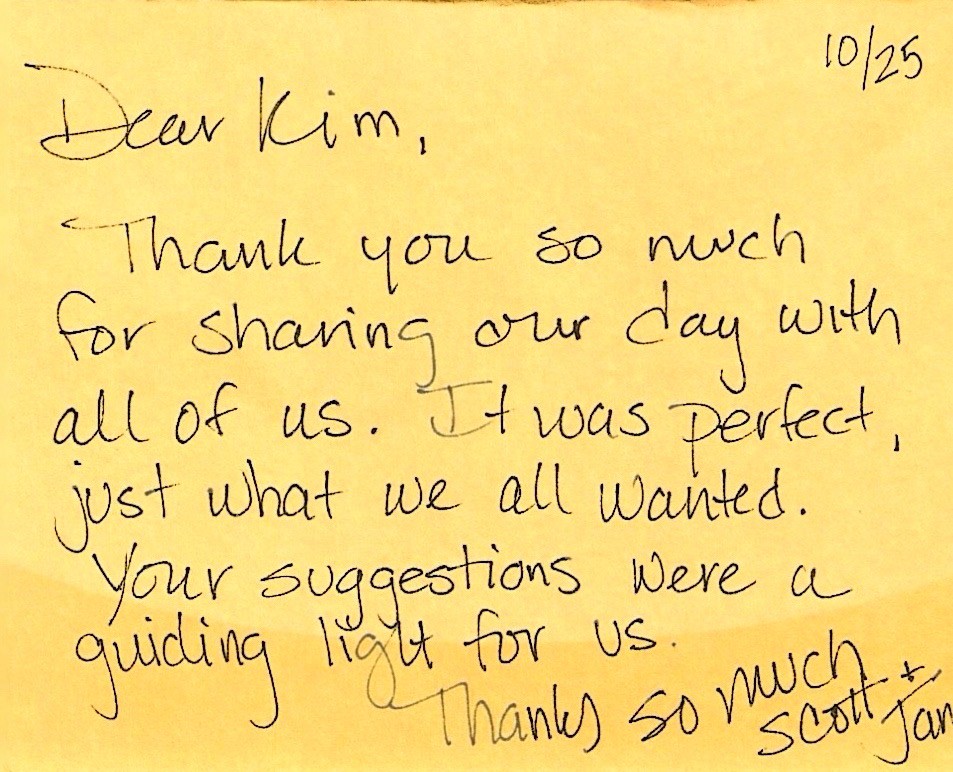 10/25
Dear Kim,
Thank you so much
for sharing our day with
all of us. It was perfect,
just what we all wanted.
Your suggestions were a
guiding light for us.
Thanks so much
Scott + Jan